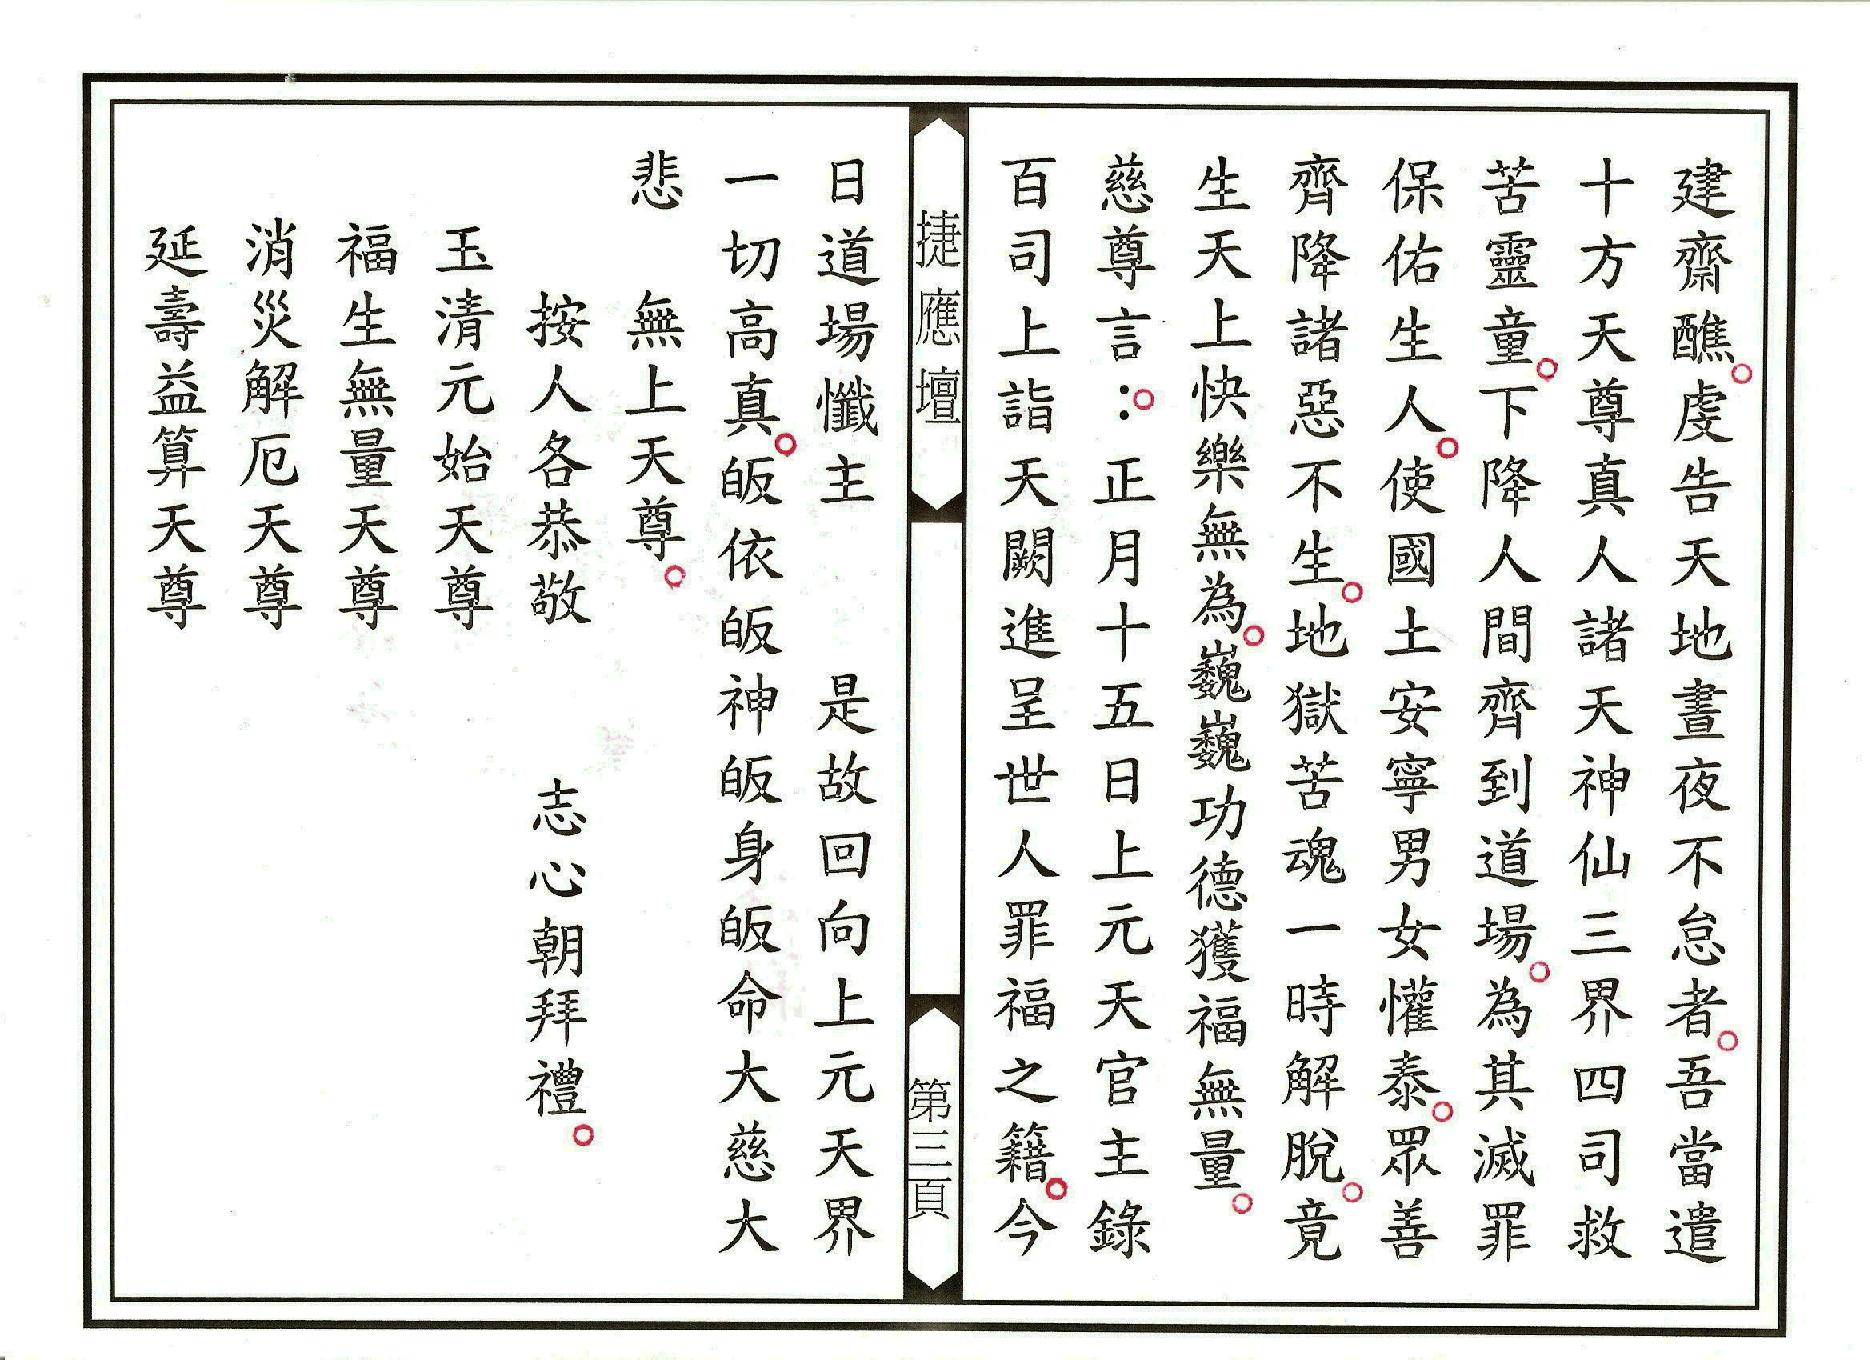 建齋醮。虔告天地晝夜不怠者。吾當遣
十方天尊真人諸天神仙三界四司救
苦靈童。下降人間齊到道場。為其滅罪
保佑生人。使國土安寧男女懽泰。眾善
齊降諸惡不生。地獄苦魂一時解脫。竟
生天上快樂無為。巍巍功德獲福無量。
慈尊言：。正月十五日上元天官主錄
百司上詣天闕進呈世人罪福之籍。今
捷應壇
第三頁
日道場懺主　　是故回向上元天界
一切高真。皈依皈神皈身皈命大慈大
悲　無上天尊。
按人各恭敬　　志心朝拜禮。
玉清元始天尊
福生無量天尊
消災解厄天尊
延壽益算天尊